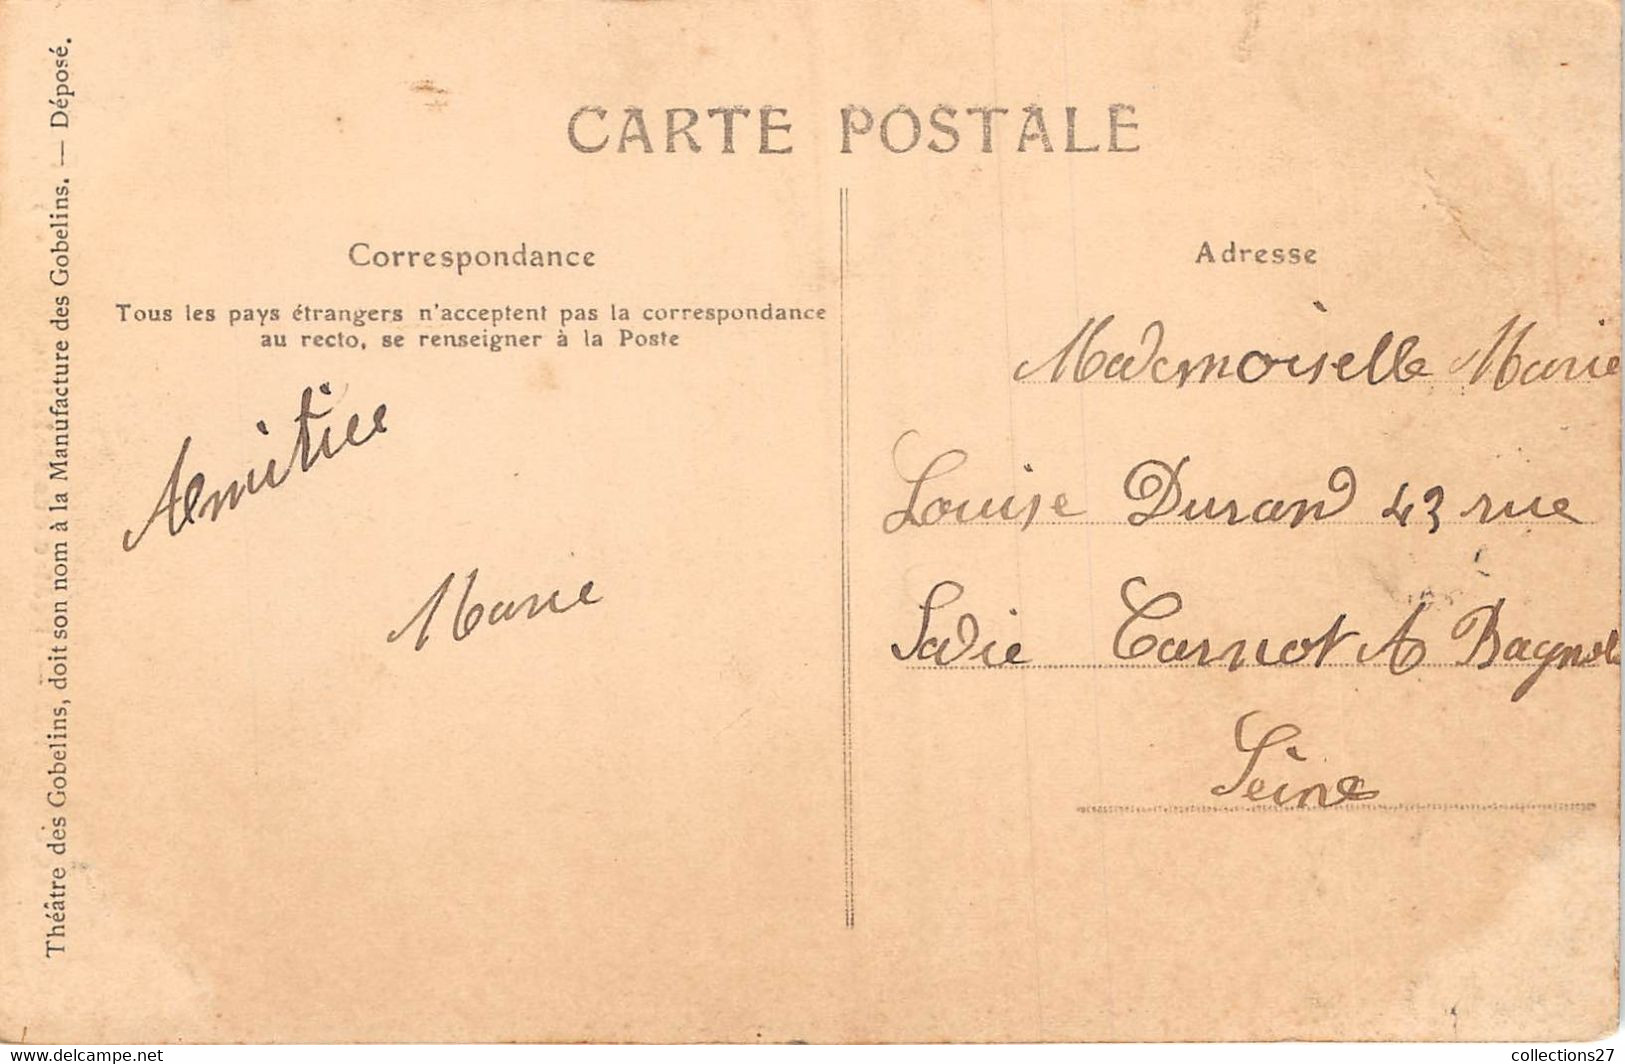 CARTE POSTALE
Théâtre des Gobelins, doit son nom à la Manufacture des Gobelins. — Déposé.
Correspondance
Tous les pays étrangers n'acceptent pas la correspondance
au recto, se renseigner à la Poste
Amitiee
Marie
Adresse
Mademoiselle Marie
Louise Durand 43 rue
Sadie Carnot A Bagnole
Seine
delcampe.net
collections27